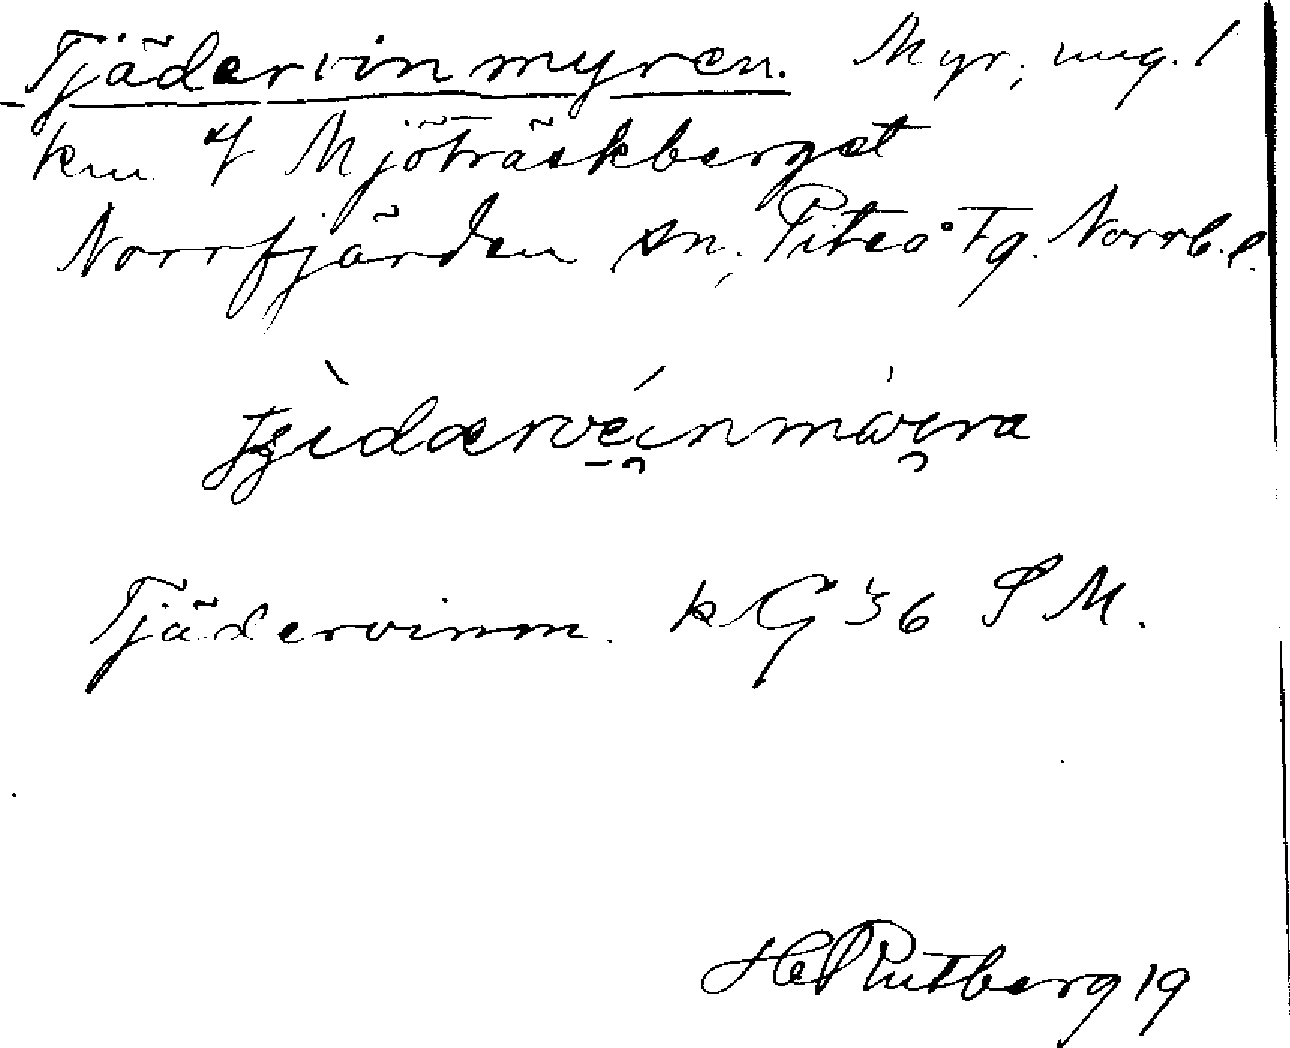 Tjädervinmyren. Myr, ung. 1
km Mjöträskberget
Norrfjärden sn, Piteå Tg. Norrb. l.
Tjädervinm. kG 36 S M.
H Rutberg 19